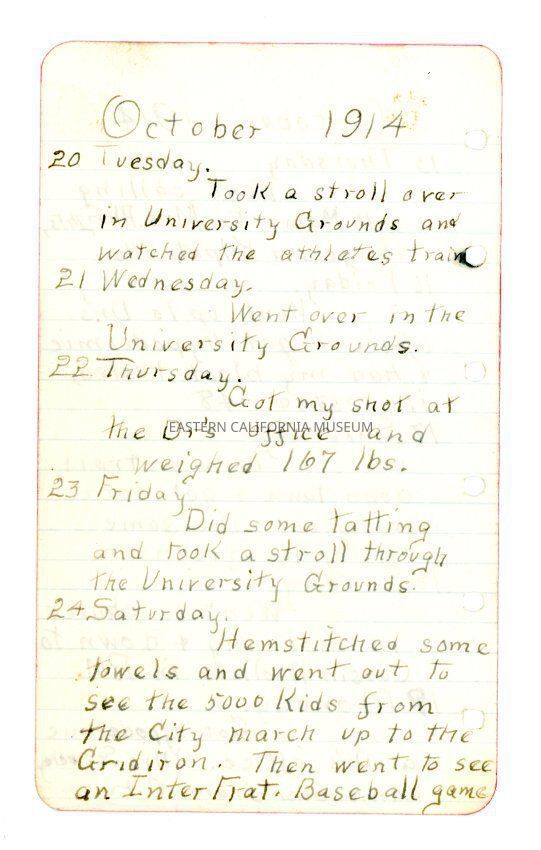 October 1914
20 Tuesday.
Took a stroll over
in University Grounds and
watched the athletes train
21 Wednesday.
Went over in the
University Grounds.
22 Thursday.
Got my shot at
the Dr's office and
EASTERN CALIFORNIA MUSEUM
weighed 167 lbs.
23 Friday
Did some tatting
and took a stroll through
the University Grounds.
24 Saturday.
Hemstitched some
towels and went out to
see the 5000 Kids from
the City march up to the
Gridiron. Then went to see
an Inter Frat. Baseball game